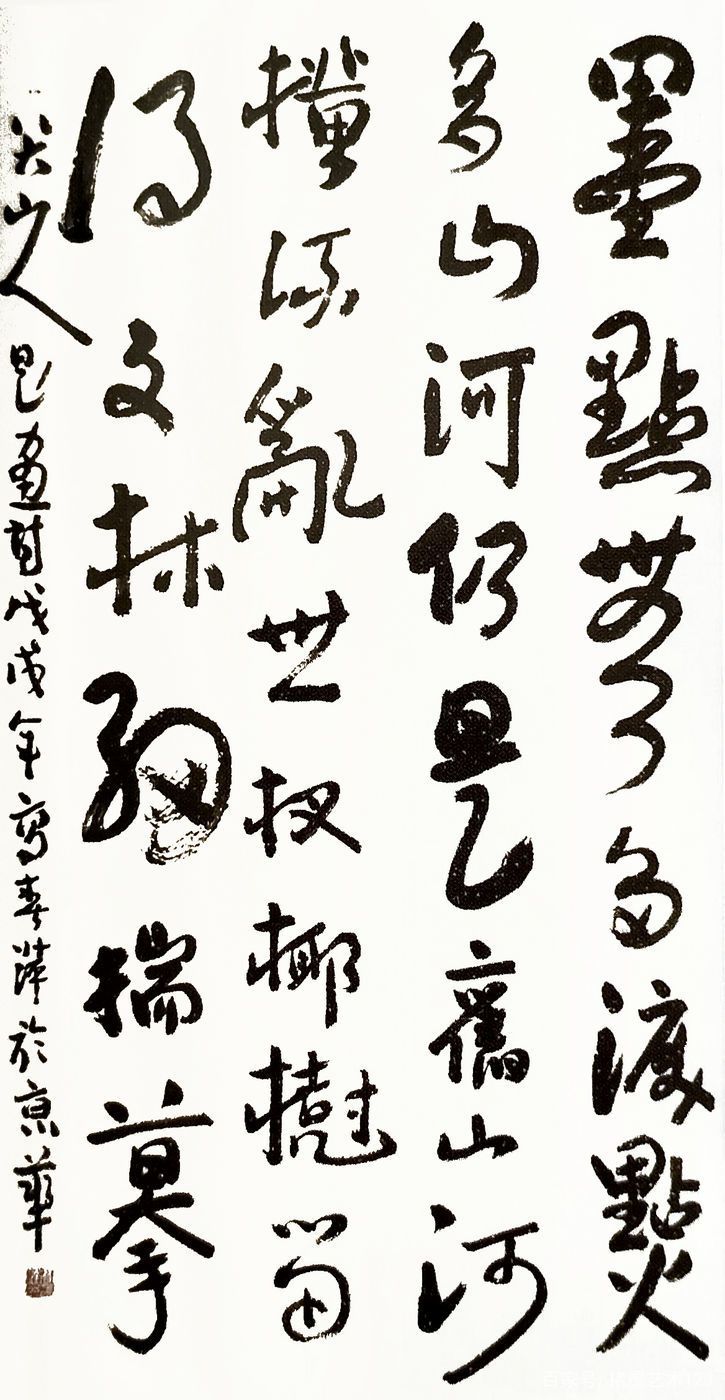 墨點無多淚點
多山河仍是舊山河
橫流亂世杈椰樹留
得文林細揣摹
八大山人題畫詩戊戌年高春於京華